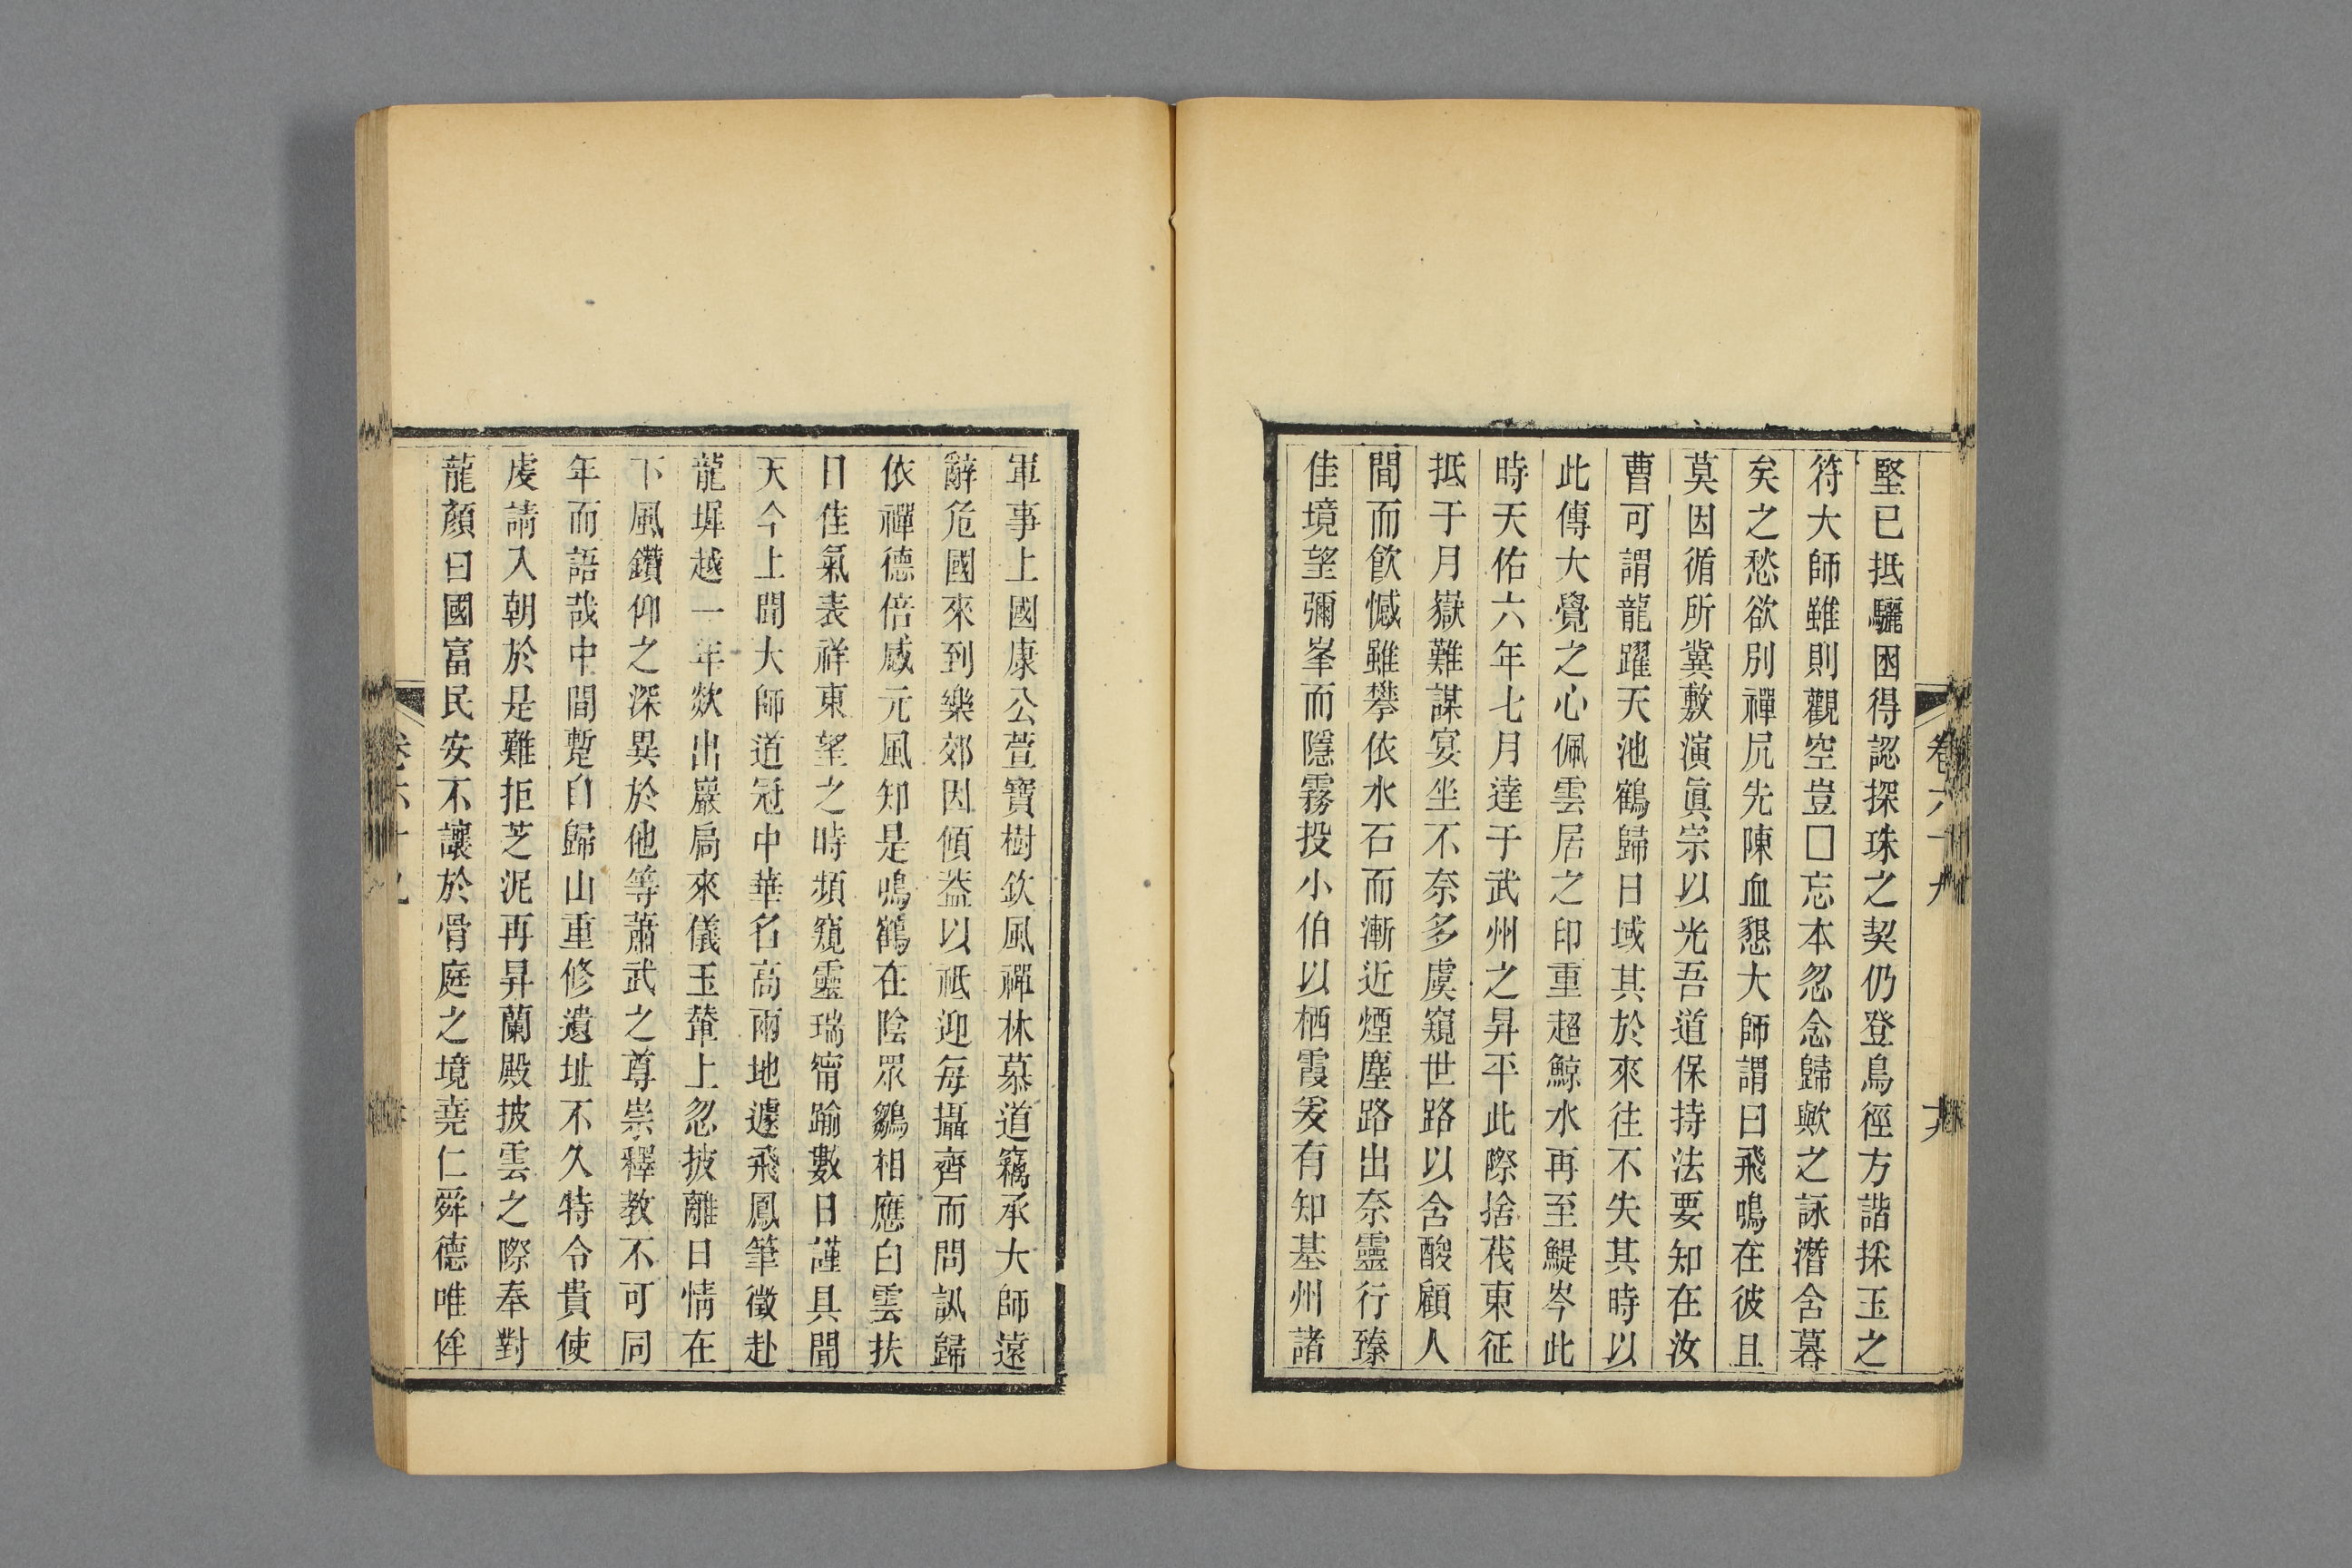 堅已抵驪困得認探珠之契仍登鳥徑方諧採玉之
符大師雖則觀空豈□忘本忽念歸歟之詠潛含暮
矣之愁欲別禪凥先陳血懇大師謂曰飛鳴在彼且
莫因循所冀敷演眞宗以光吾道保持法要知在汝
曹可謂龍躍天池鶴歸日域其於來往不失其時以
此傳大覺之心佩雲居之印重超鯨水再至鯷岑此
時天佑六年七月達于武州之昇平此際捨茷東征
抵于月嶽難謀宴坐不奈多虞窺世路以含酸顧人
間而飮憾雖攀依水石而漸近煙塵路出奈靈行臻
佳境望彌峯而隱霧投小伯以栖霞爰有知基州諸
軍事上國康公萱寶樹欽風禪林慕道竊承大師遠
辭危國來到樂郊因傾葢以祗迎每攝齊而問訊歸
依禪德倍感元風知是鳴鶴在陰眾鶵相應白雲扶
日佳氣表祥東望之時頻窺靈瑞甯踰數日謹具聞
天今上聞大師道冠中華名高兩地遽飛鳳筆徵赴
龍墀越一年欻出巖扃來儀玉輦上忽披離日情在
下風鑽仰之深異於他等蕭武之尊崇釋教不可同
年而語哉中間蹔自歸山重修遺址不久特令貴使
虔請入朝於是難拒芝泥再昇蘭殿披雲之際奉對
龍顏曰國富民安不讓於骨庭之境堯仁舜德唯侔